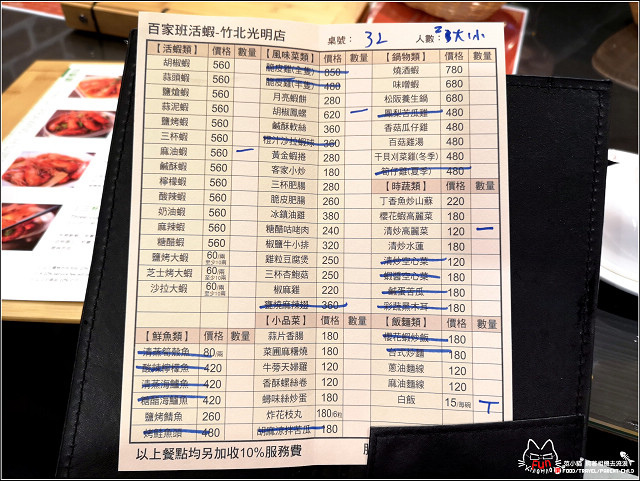 百家班活蝦-竹北光明店
桌號： 32 人數： 3大1小
【活蝦類】 價格 數量
胡椒蝦 560
蒜頭蝦 560
鹽焗蝦 560
蒜泥蝦 560
鹽烤蝦 560
三杯蝦 560
麻油蝦 560 一
鹹酥蝦 560
檸檬蝦 560
酸辣蝦 560
奶油蝦 560
麻辣蝦 560
糖醋蝦 560
鹽烤大蝦 60/兩 至少10兩
芝士烤大蝦 60/兩 至少10兩
沙拉大蝦 60/兩 至少10兩
【鮮魚類】 價格 數量
清蒸筍殼魚 80/兩
酸辣檸檬魚 420
清蒸海鱸魚 420
糖醋海鱸魚 420
鹽烤鯖魚 260
烤鮭魚頭 480
【風味菜類】 價格 數量
脆皮雞(全隻) 850
脆皮雞(半隻) 480
月亮蝦餅 280
胡椒鳳螺 620 一
鹹酥軟絲 360
橙汁沙拉蝦球 360
黃金蝦捲 280
客家小炒 180
三杯肥腸 280
脆皮肥腸 260
冰鎮油雞 380
糖醋咕咾肉 240
椒鹽牛小排 320
雞粒豆腐煲 250
三杯杏鮑菇 250
椒麻雞 220
甕燒麻辣翅 360
【小品菜】 價格 數量
蒜片香腸 180
菜圃麻糬燒 180
牛蒡天婦羅 120
香酥螺絲卷 120
蟳味絲炒蛋 180
炸花枝丸 180/6粒
胡麻涼拌苦瓜 180
【鍋物類】 價格 數量
燒酒蝦 780
味噌蝦 680
松阪養生鍋 680
鳳梨苦瓜雞 480
香菇瓜仔雞 480
百菇雞湯 480
干貝刈菜雞(冬季) 480
筍仔雞(夏季) 480
【時蔬類】 價格 數量
丁香魚炒山蘇 220
櫻花蝦高麗菜 180
清炒高麗菜 120 一
清炒水蓮 180
清炒空心菜 120
蝦醬空心菜 180
鹹蛋苦瓜 180
彩蔬黑木耳 180
【飯麵類】 價格 數量
櫻花蝦炒飯 180
台式炒麵 180
蔥油麵線 120
麻油麵線 120
白飯 15/每碗
以上餐點均另加收10%服務費